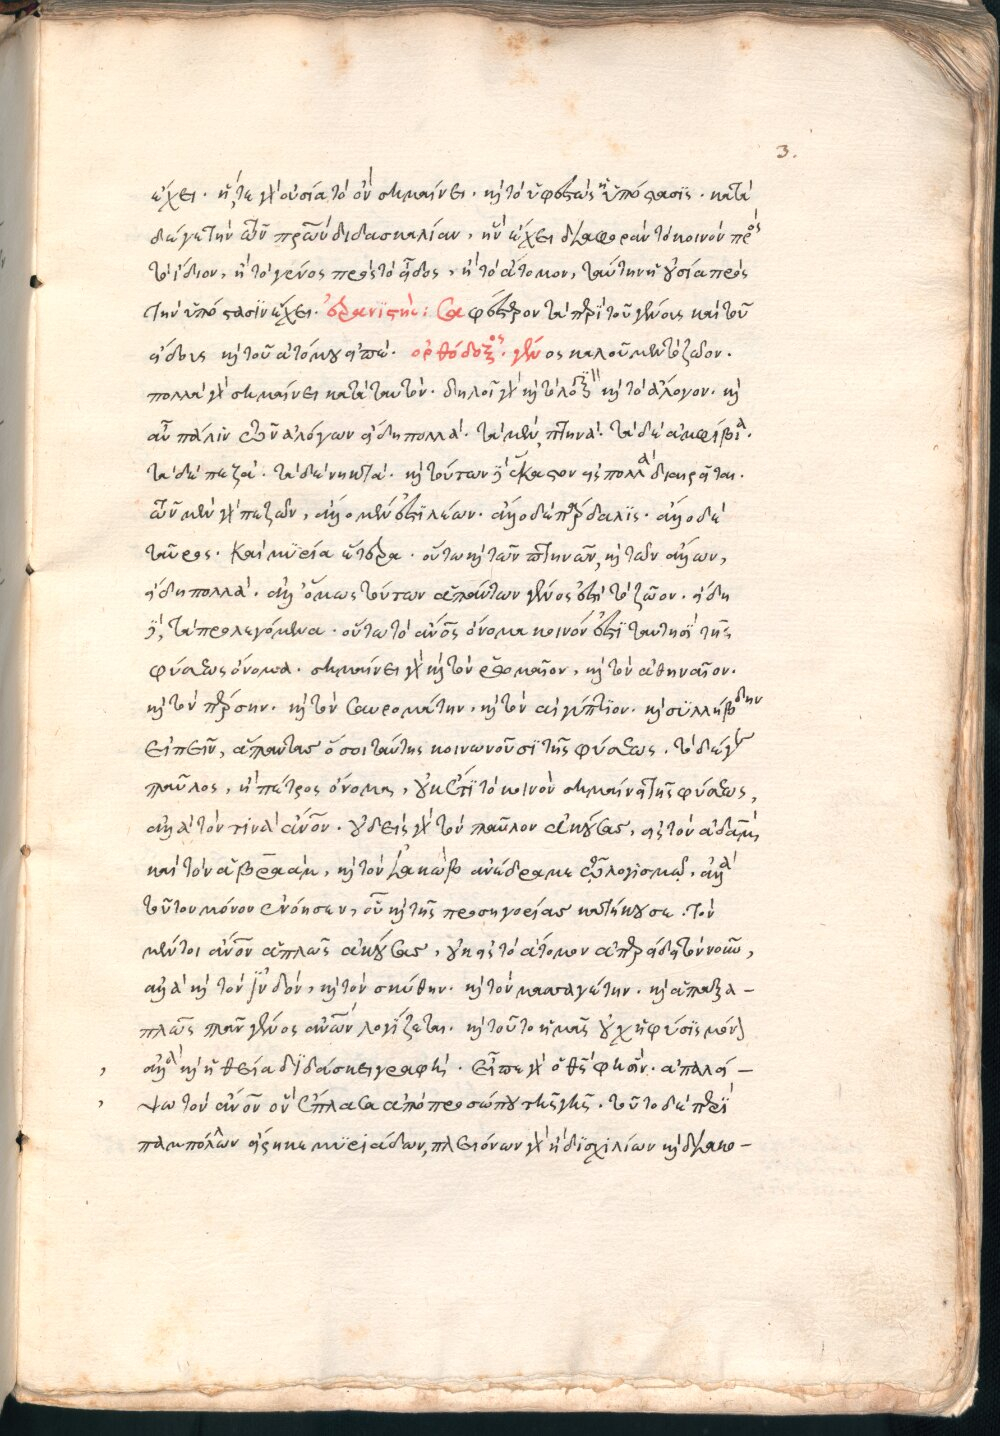 3.
ἔχει· ἥ τε γὰρ οὐσία τὸ ὂν σημαίνει· καὶ τὸ ὑφεστὼς ἡ ὑπόστασις· κατὰ
δέ γε τὴν τῶν πρων διδασκαλίαν, ἣν ἔχει διαφορὰν τὸ κοινὸν πρὸς
τὸ ἴδιον, ἢ τὸ γένος πρὸς τὸ εἶδος, ἢ τὸ ἄτομον, ταύτην ἡ οὐσία πρὸς
τὴν ὑπόστασιν ἔχει. ἐρανιστής: Σαφέστερον τὰ περὶ τοῦ γένους καὶ τοῦ
εἴδους καὶ τοῦ ἀτόμου εἰπέ. ὀρθόδοξος· γένος καλοῦμεν τὸ ζῶον.
πολλὰ γὰρ σημαίνει κατὰ ταυτόν· δηλοῖ γὰρ καὶ τὸ λογικὸν καὶ τὸ ἄλογον· καὶ
αὖ πάλιν τῶν ἀλόγων εἴδη πολλά· τὰ μὲν πτηνά· τὰ δὲ ἀμφίβια·
τὰ δὲ πεζά· τὰ δὲ νηκτά· καὶ τούτων δὲ ἕκαστον εἰς πολλὰ διαιρεῖται.
τῶν μὲν γὰρ πεζῶν, ἄλλο μέν ἐστι λέων· ἄλλο δὲ πάρδαλις· ἄλλο δὲ
ταῦρος· καὶ μυρία ἕτερα· οὕτω καὶ τῶν πτηνῶν, καὶ τῶν ἄλλων,
εἴδη πολλά· ἀλλ' ὅμως τούτων ἁπάντων γένος ἐστὶ τὸ ζῶον· εἴδη
δὲ, τὰ προλεγόμενα· οὕτω τὸ ἄνος ὄνομα κοινόν ἐστι ταυτησὶ τῆς
φύσεως ὄνομα· σημαίνει γὰρ καὶ τὸν ῥωμαῖον, καὶ τὸν ἀθηναῖον.
καὶ τὸν πέρσην· καὶ τὸν σαυρομάτην, καὶ τὸν αἰγύπτιον· καὶ συλλήβδην
εἰπεῖν, ἅπαντας ὅσοι ταύτης κοινωνοῦσι τῆς φύσεως· τὸ δέ γε
παῦλος, ἢ πέτρος ὄνομα, οὐκ ἔτι τὸ κοινὸν σημαίνει τῆς φύσεως,
ἀλλὰ τόν τινα ἄνον· οὐδεὶς γὰρ τὸν παῦλον ἀκούσας, εἰς τὸν ἀδὰμ
καὶ τὸν ἀβραὰμ, καὶ τὸν ἰακὼβ ἀνέδραμε τῷ λογισμῷ, ἀλλὰ
τοῦτον μόνον ἐνόησεν, οὗ καὶ τῆς προσηγορίας κατήκουσε. Τὸν
μέντοι ἄνον ἁπλῶς ἀκούσας, οὐκ εἰς τὸ ἄτομον ἀπερείδει τὸν νοῦν,
ἀλλὰ καὶ τὸν ἰνδὸν, καὶ τὸν σκύθην· καὶ τὸν μασσαγέτην· καὶ ἁπαξα-
πλῶς πᾶν γένος ἀνων λογίζεται· καὶ τοῦτο ἡμᾶς οὐχ ἡ φύσις μόνον
ἀλλὰ καὶ ἡ θεία διδάσκει γραφή· εἶπε γὰρ ὁ θς φησὶν· ἀπαλεί-
ψω τὸν ἄνον ὃν ἔπλασα ἀπὸ προσώπου τῆς γῆς· τοῦτο δὲ περὶ
παμπόλλων εἴρηκε μυριάδων, πλειόνων γὰρ ἢ δισχιλίων καὶ διακο-